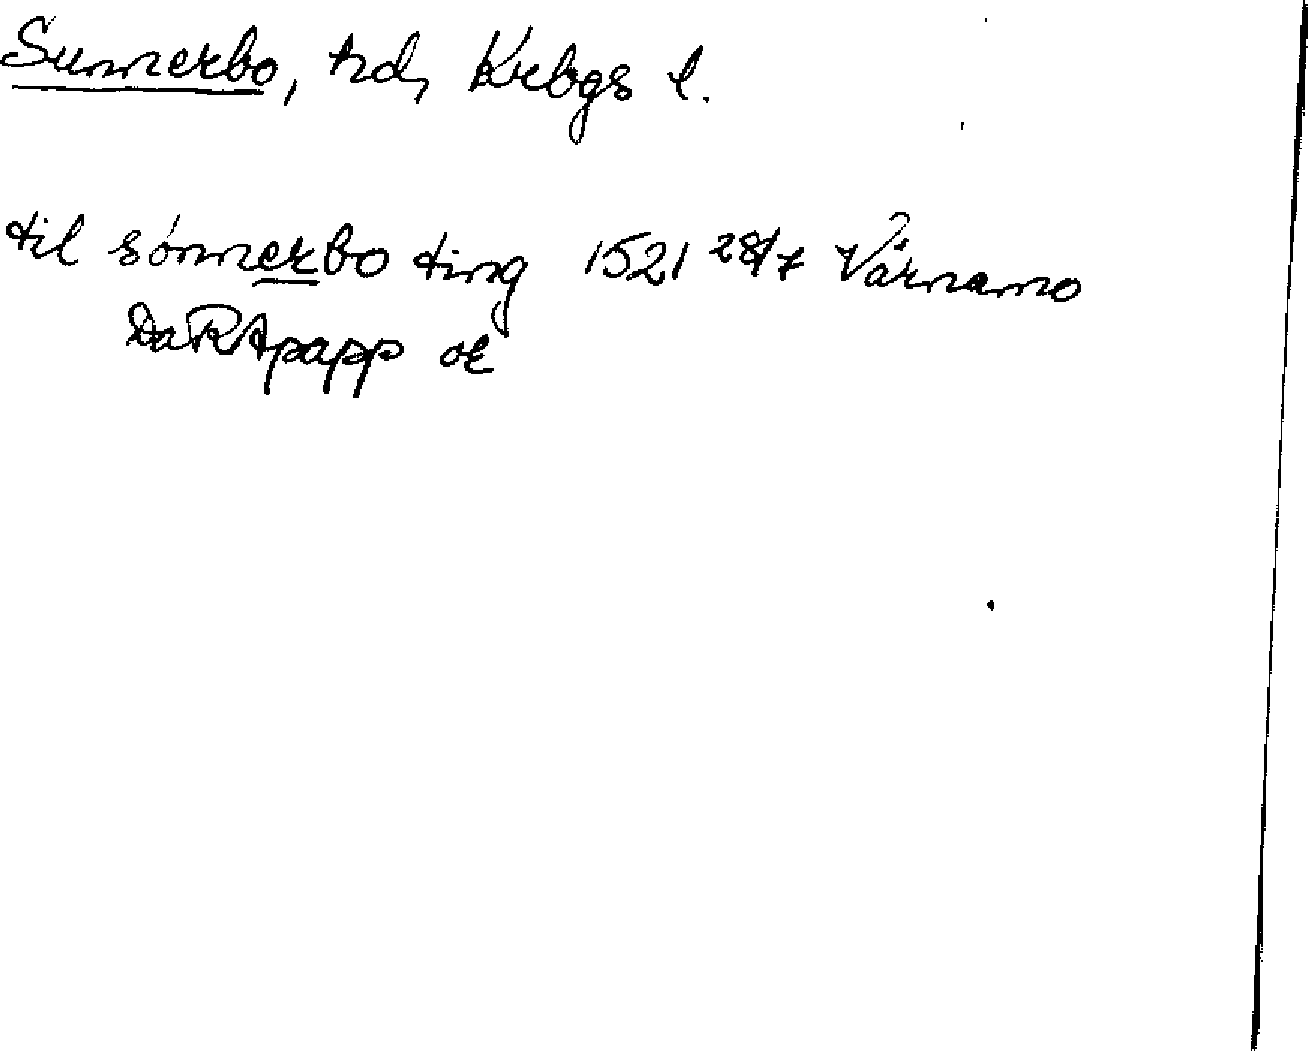 Sunnerbo, hd, Krbgs l.
til sónnerbo ting 1521 28/7 Värnamo
DaRApapp or